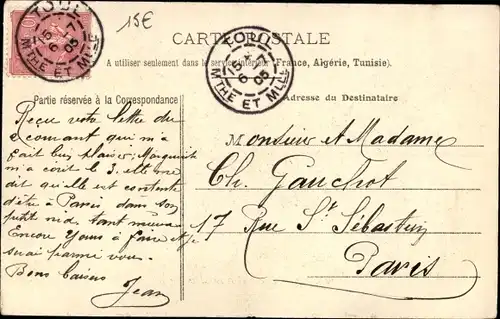 15€
TOUL
6 05
MTHE ET MLLE
CARTE POSTALE
TOUL
6 05
MTHE ET MLLE
A utiliser seulement dans le service intérieur (France, Algérie, Tunisie).
Partie réservée à la Correspondance
Adresse du Destinataire
Reçu votre lettre du
courant qui m'a
fait bien plaisir, Marguerite
m'a écrit le 3. elle me
dit qu'elle est contente
d'être à Paris dans son
petit nid, tant mieux
Encore jours à faire et je
serai parmi vous.
Bons baisers
Jean
Monsieur et Madame
Ch. Gauchot
17 Rue St Sébastien
Paris